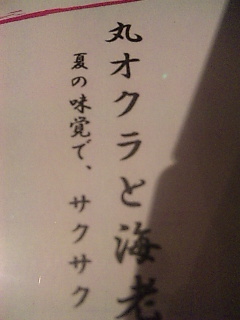 丸オクラと海老
夏の味覚で、サクサク